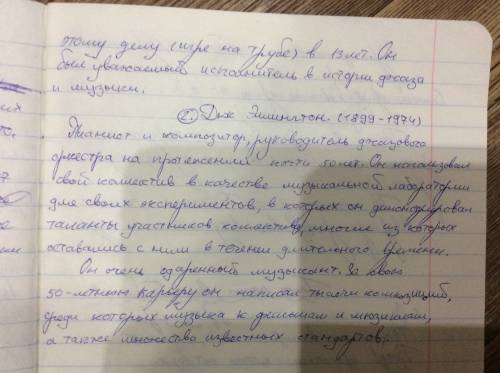 этому делу (игре на трубе) в 13 лет. Он
был уважаемый исполнитель в истории джаза
и музыки.
2. Дюк Эллингтон. (1899-1974)
Пианист и композитор, руководитель джазового
оркестра на протяжении почти 50 лет. Он использовал
свой коллектив в качестве музыкальной лаборатории
для своих экспериментов, в которых он демонстрировал
таланты участников коллектива, многие из которых
оставались с ним в течении длительного времени.
Он очень одаренный музыкант. За свою
50-летнюю карьеру он написал тысячи композиций,
среди которых музыка к фильмам и мюзиклам,
а также множество известных стандартов.